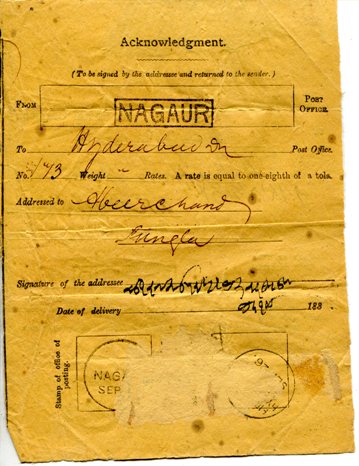 Acknowledgment.
(To be signed by the addressee and returned to the sender.)
FROM NAGAUR POST OFFICE.
To Hyderabad Dn Post Office.
No. 173 Weight " Rates. A rate is equal to one-eighth of a tola.
Addressed to
Signature of the addressee
Date of delivery 188
Stamp of office of posting.
NAGA
SEP